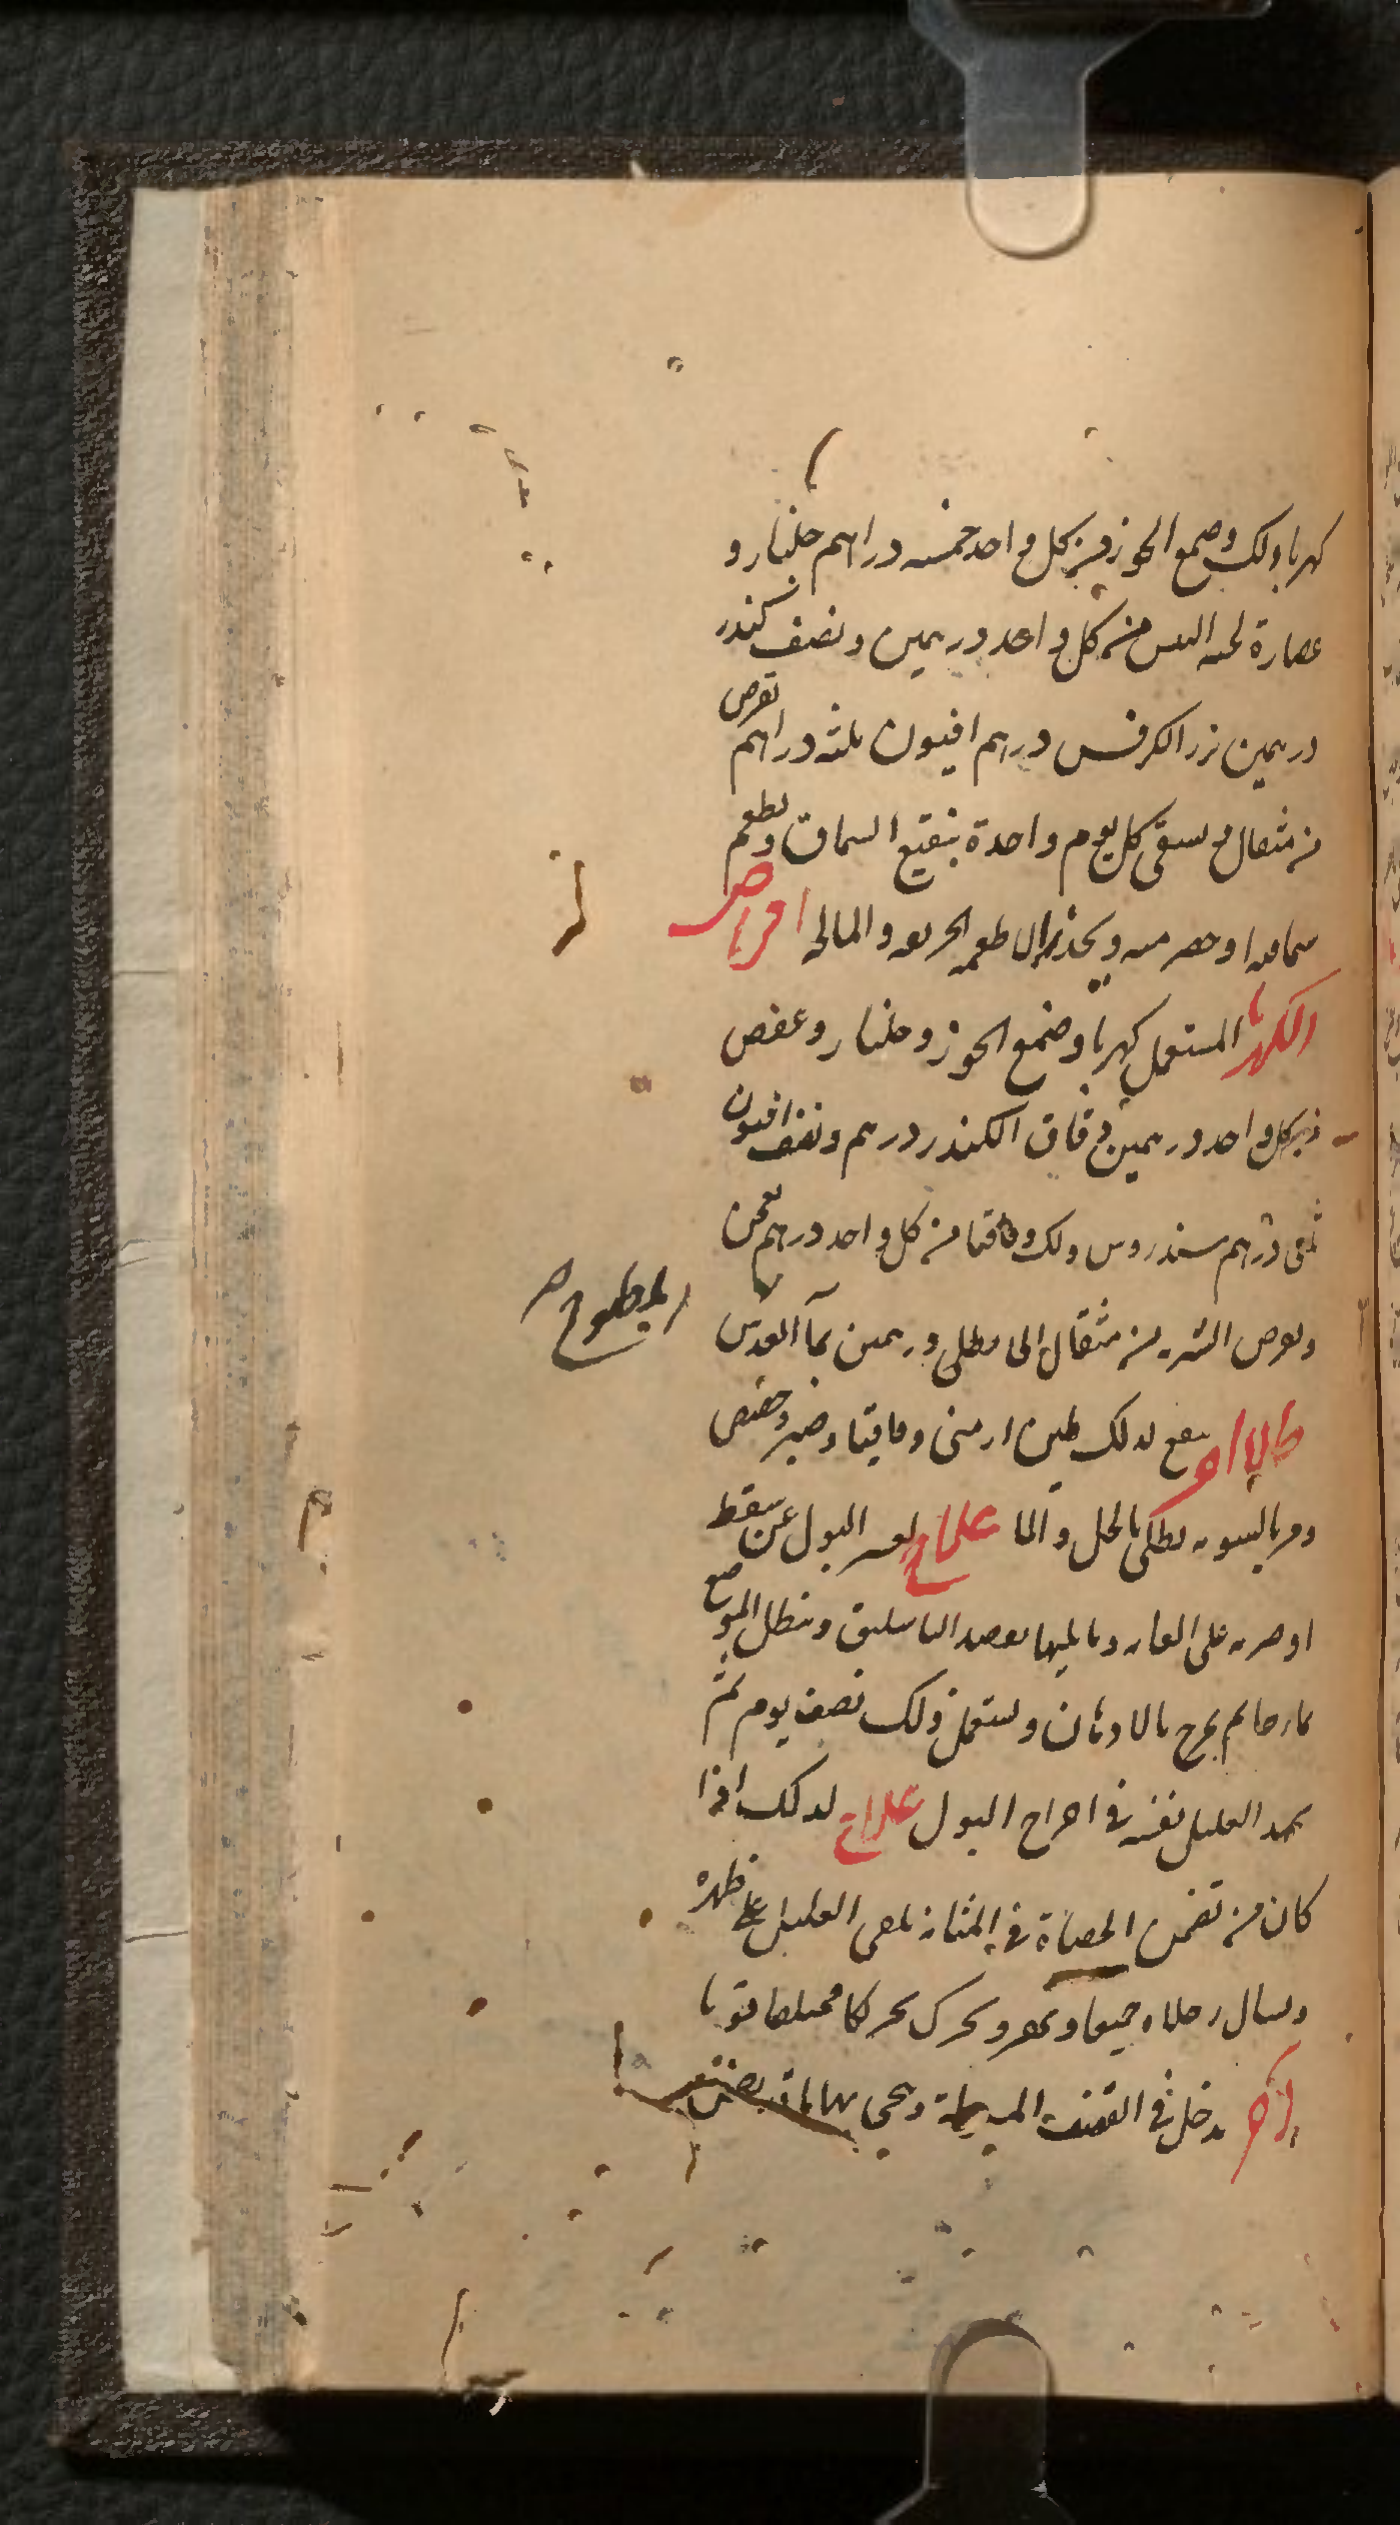 كهربا ولك وصمغ الجوز من كل واحد خمسه دراهم جلنار و
عصارة لحيه التيس من كل واحد درهمين ونصف كندر
درهمين بزر الكرفس درهم افيون ثلثه دراهم تقرص
من مثقال ويسقى كل يوم واحدة بنقيع السماق ويطعم
سماقيه او حصرميه ويحذر الاطعمه الحريفه والمالحه اقراص
الكهربا المستعمل كهربا وصمغ الجوز وجلنار وعفص
من كل واحد درهمين دقاق الكندر درهم ونصف افيون
ثلثى درهم سندروس ولك وقاقيا من كل واحد درهم يعجن
ويقرص الشربه من مثقال الى درهمين بماء العدس
المطبوخ
طلا اخر ينفع لذلك طين ارمنى وقاقيا وصبر وحضض
بالسويه يطلى بالخل والما علاج لعسر البول عن سقطه
او ضربه على العانه وما يليها يفصد الباسليق وينطل الموضع
بما حار ثم يمرخ بالادهان ويستعمل ذلك نصف يوم ثم
يجهد العليل نفسه فى اخراج البول علاج لذلك اذا
كان من تضمن الحصاة فى المثانه يلقى العليل على ظهره
ويشال رجلاه جميعا ويحرك تحريكا مختلفا قويا
اخر يدخل فى القضيب